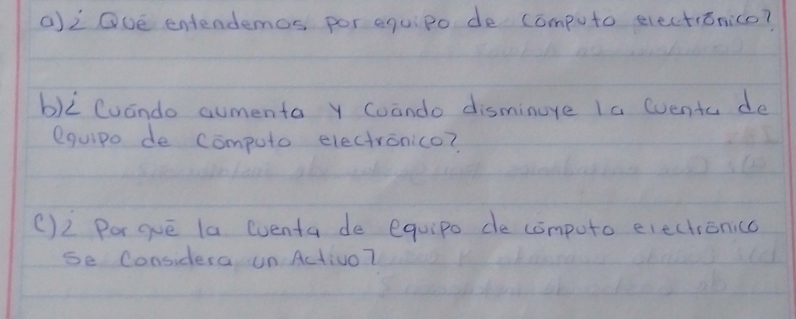 a)¿ Qué entendemos por equipo de cómputo electrónico?
b)¿ Cuándo aumenta y cuándo disminuye la cuenta de
equipo de cómputo electrónico?
c)¿ Por qué la cuenta de equipo de cómputo electrónico
se considera un Activo?